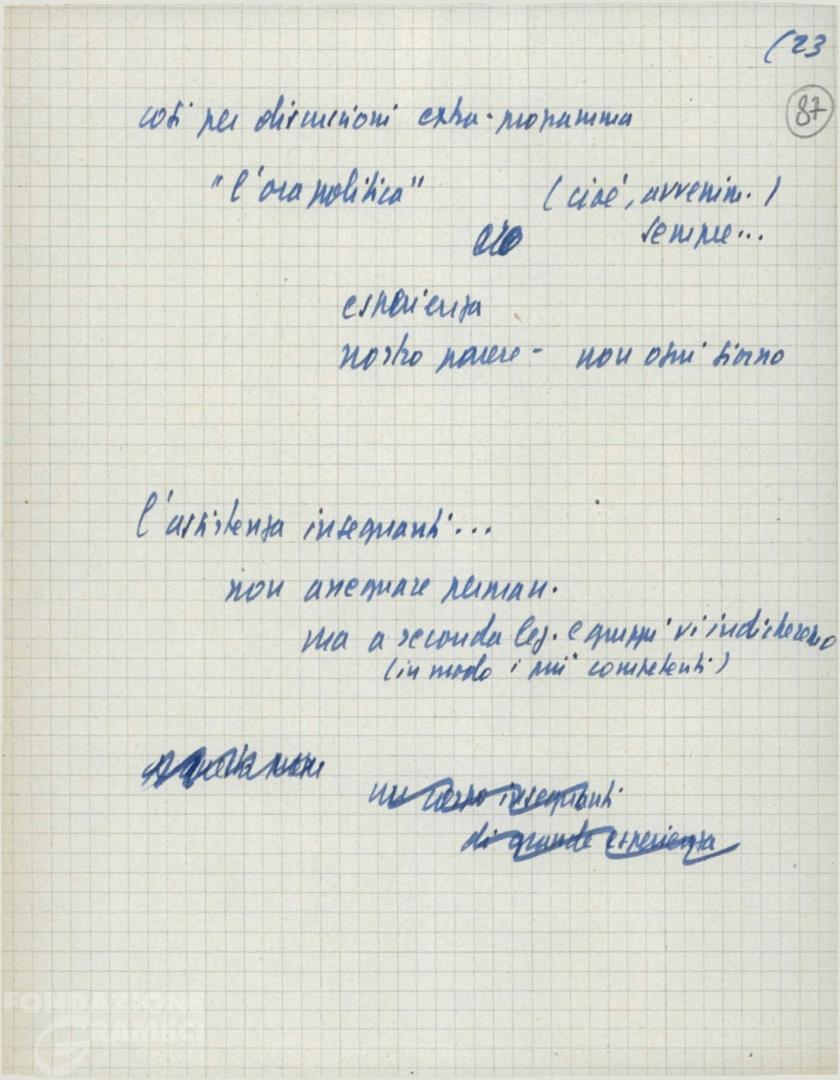 (23
87
così per discussioni extra-programma
"l'ora politica" (cioè, avvenim.)
sempre...
esperienza
nostro parere - non ogni giorno
l'assistenza insegnanti...
non assegnare perman.
ma a seconda lez. e gruppi vi indicheremo
(in modo i più competenti)
un corpo insegnanti
di grande esperienza
FONDAZIONE
GRAMSCI